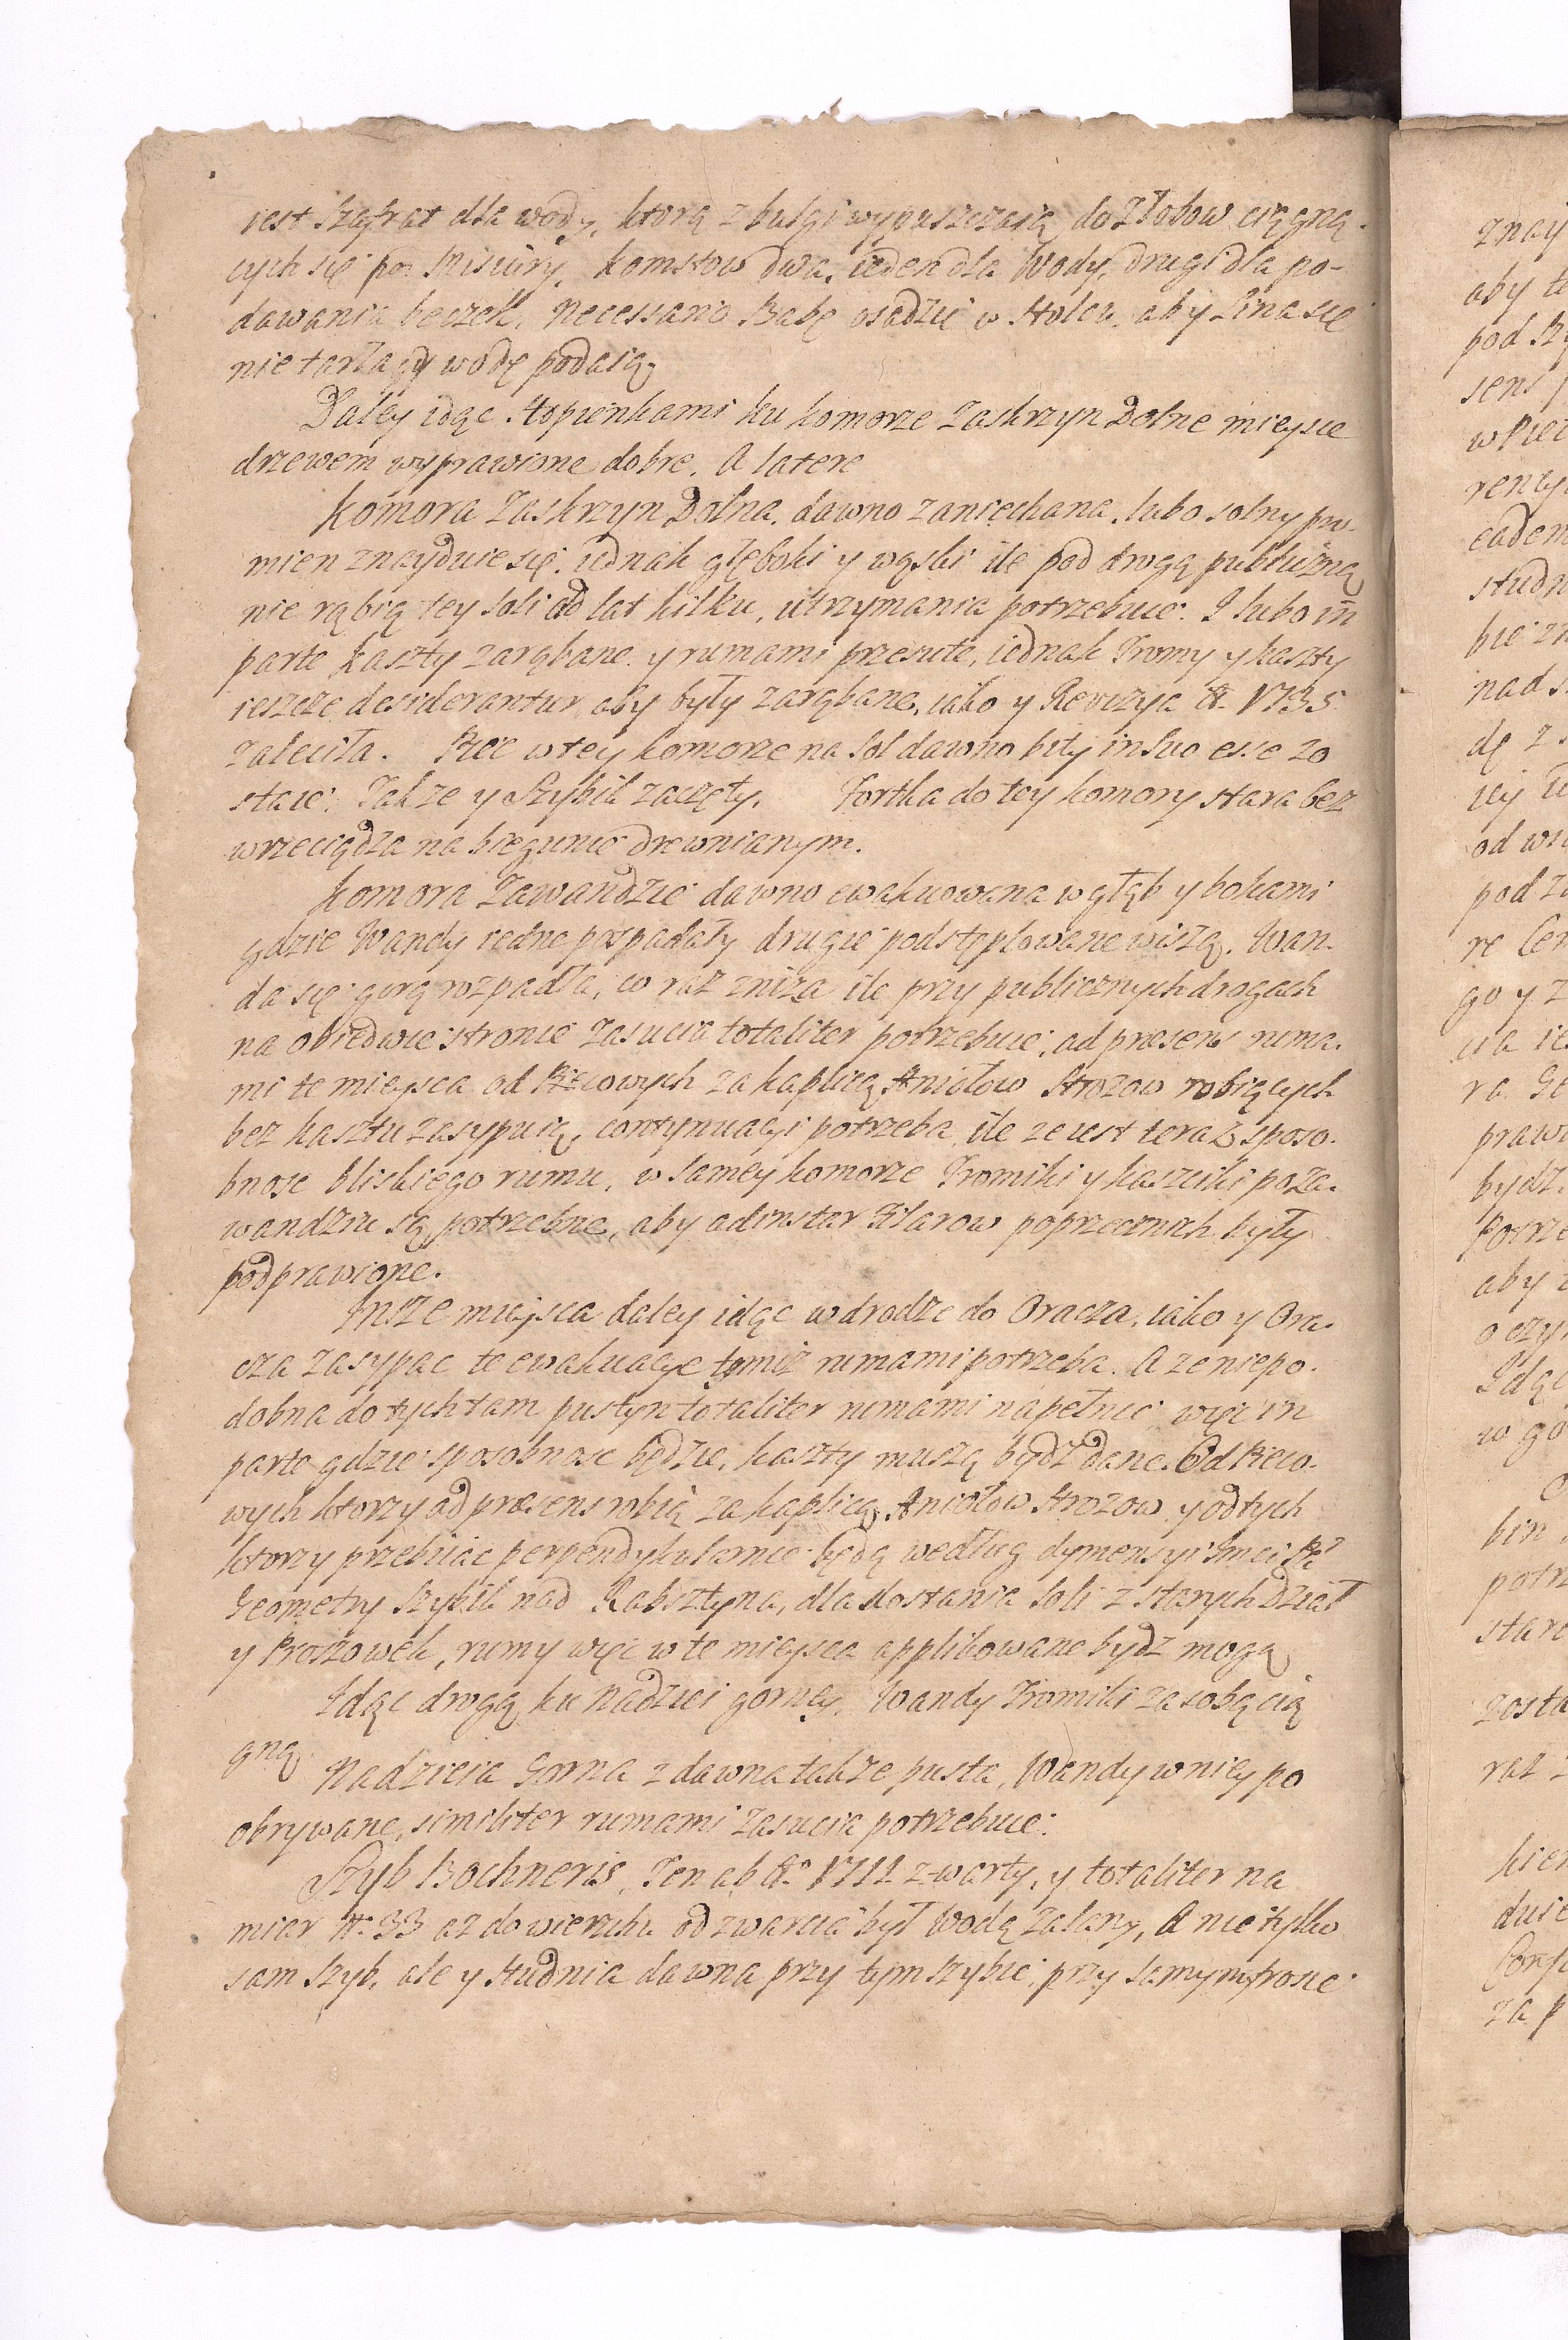 iest Szafrat dla wody, ktorą z bulgi wypuszczaią do Złobow ciągną-
cych się po Misiury, komstow dwa, ieden dla Wody, drugi dla po-
dawania beczek, necessario Babę osadzić w Stolcu, aby Lina się
nie tarła gdy wodę podaią,
Daley idąc Stopienkami ku komorze Zaskrzyn Dolne mieysce
drzewem wyprawione dobre. A latere
Komora Zaskrzyn Dolna, dawno zaniechana, lubo solny pro-
mien znayduie się, iednak głęboki y wąski ile pod drogą publiczną
nie rąbią tey soli od lat kilku, utrzymania potrzebuie. I lubo in
parte kaszty zarąbane y rumami przesute, iednak Tromy y kaszty
ieszcze desiderantur, aby były zarąbane, iako y Rewizya A. 1735
zaleciła. Piec w tey komorze na Sol dawno bity in Suo esse zo
staie. Takze y Szybik zaczęty. Fortka do tey komory stara bez
wrzeciądza na biegunie drewnianym.
Komora Zawandzie dawno ewakuowana w głąb y bokami
gdzie Wandy iedne pospadały drugie podstęplowane wiszą. Wan-
da się gorą rozpadła, co raz zniza ile przy publicznych drogach
na obiedwie stronie Zasucia totaliter potrzebuie, ad præsens ruma-
mi te mieysca od Piecowych za kaplicą Aniołow Strozow robiących
bez kasztu zasypuią, contynuacyi potrzeba ile ze iest teraz sposo-
bnosc bliskiego rumu, w samey komorze Tromiki y kasziki po Za-
wandziu są potrzebne, aby ad instar Filarow poprzecznich były
podprawione.
Insze mieysca daley idąc w drodze do Oracza, iako y Ora-
cza zasypac te ewakuacye temiz rumami potrzeba. A ze niepo-
dobna do tych tam pustyn totaliter rumami napełnic więc in
parte gdzie sposobnosc będzie, kaszty muszą bydz dane. Od Pieco-
wych ktorzy ad præsens robią za kaplicą Aniołow Strozow y od tych
ktorzy przebiiac perpendykularnie będą według dymensyi Jmci P.
Geometry Szybik nad Rabsztyna, dla dostania soli z starych Dział
y Proszowek, rumy więc w te mieysca applikowane bydz mogą
Idąc drogą ku Nadziei gorney, Wandy Tromiki za sobą cią
gną.
Nadzieia Gorna z dawna takze pusta, Wandy w niey po
obrywane, similiter rumami zasucia potrzebuie.
Szyb Bochneris, Ten ab Ao 1711 zwarty, y totaliter na
miar No 33 az do wierzchu od zwarcia był Wodą zalany, A nie tylko
sam Szyb, ale y Studnia dawna przy tym szybie, przy samym prosie